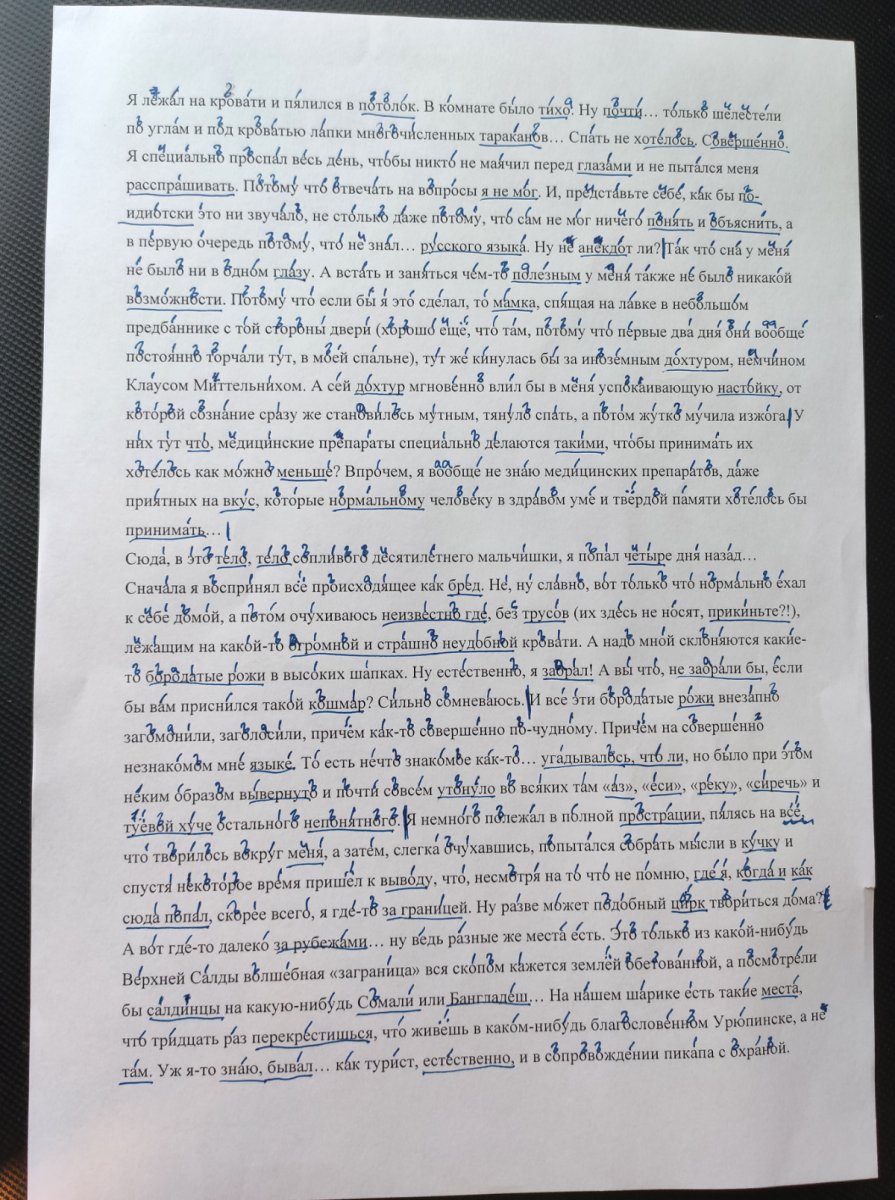 Я лежал на кровати и пялился в потолок. В комнате было тихо. Ну почти… только шелестели
по углам и под кроватью лапки многочисленных тараканов… Спать не хотелось. Совершенно.
Я специально проспал весь день, чтобы никто не маячил перед глазами и не пытался меня
расспрашивать. Потому что отвечать на вопросы я не мог. И, представьте себе, как бы по-
идиотски это ни звучало, не столько даже потому, что сам не мог ничего понять и объяснить, а
в первую очередь потому, что не знал… русского языка. Ну не анекдот ли? Так что сна у меня
не было ни в одном глазу. А встать и заняться чем-то полезным у меня также не было никакой
возможности. Потому что если бы я это сделал, то мамка, спящая на лавке в небольшом
предбаннике с той стороны двери (хорошо ещё, что там, потому что первые два дня они вообще
постоянно торчали тут, в моей спальне), тут же кинулась бы за иноземным дохтуром, немчином
Клаусом Миттельнихом. А сей дохтур мгновенно влил бы в меня успокаивающую настойку, от
которой сознание сразу же становилось мутным, тянуло спать, а потом жутко мучила изжога. У
них тут что, медицинские препараты специально делаются такими, чтобы принимать их
хотелось как можно меньше? Впрочем, я вообще не знаю медицинских препаратов, даже
приятных на вкус, которые нормальному человеку в здравом уме и твёрдой памяти хотелось бы
принимать…
Сюда, в это тело, тело сопливого десятилетнего мальчишки, я попал четыре дня назад…
Сначала я воспринял всё происходящее как бред. Не, ну славно, вот только что нормально ехал
к себе домой, а потом очухиваюсь неизвестно где, без трусов (их здесь не носят, прикиньте?!),
лежащим на какой-то огромной и страшно неудобной кровати. А надо мной склоняются какие-
то бородатые рожи в высоких шапках. Ну естественно, я заорал! А вы что, не заорали бы, если
бы вам приснился такой кошмар? Сильно сомневаюсь. И все эти бородатые рожи внезапно
загомонили, заголосили, причём как-то совершенно по-чудному. Причём на совершенно
незнакомом мне языке. То есть нечто знакомое как-то… угадывалось, что ли, но было при этом
неким образом вывернуто и почти совсем утонуло во всяких там «аз», «еси», «реку», «сиречь» и
туевой хуче остального непонятного. Я немного полежал в полной прострации, пялясь на всё,
что творилось вокруг меня, а затем, слегка очухавшись, попытался собрать мысли в кучку и
спустя некоторое время пришёл к выводу, что, несмотря на то что не помню, где я, когда и как
сюда попал, скорее всего, я где-то за границей. Ну разве может подобный цирк твориться дома?
А вот где-то далеко за рубежами… ну ведь разные же места есть. Это только из какой-нибудь
Верхней Салды волшебная «заграница» вся скопом кажется землёй обетованной, а посмотрели
бы салдинцы на какую-нибудь Сомали или Бангладеш… На нашем шарике есть такие места,
что тридцать раз перекрестишься, что живёшь в каком-нибудь благословенном Урюпинске, а не
там. Уж я-то знаю, бывал… как турист, естественно, и в сопровождении пикапа с охраной.